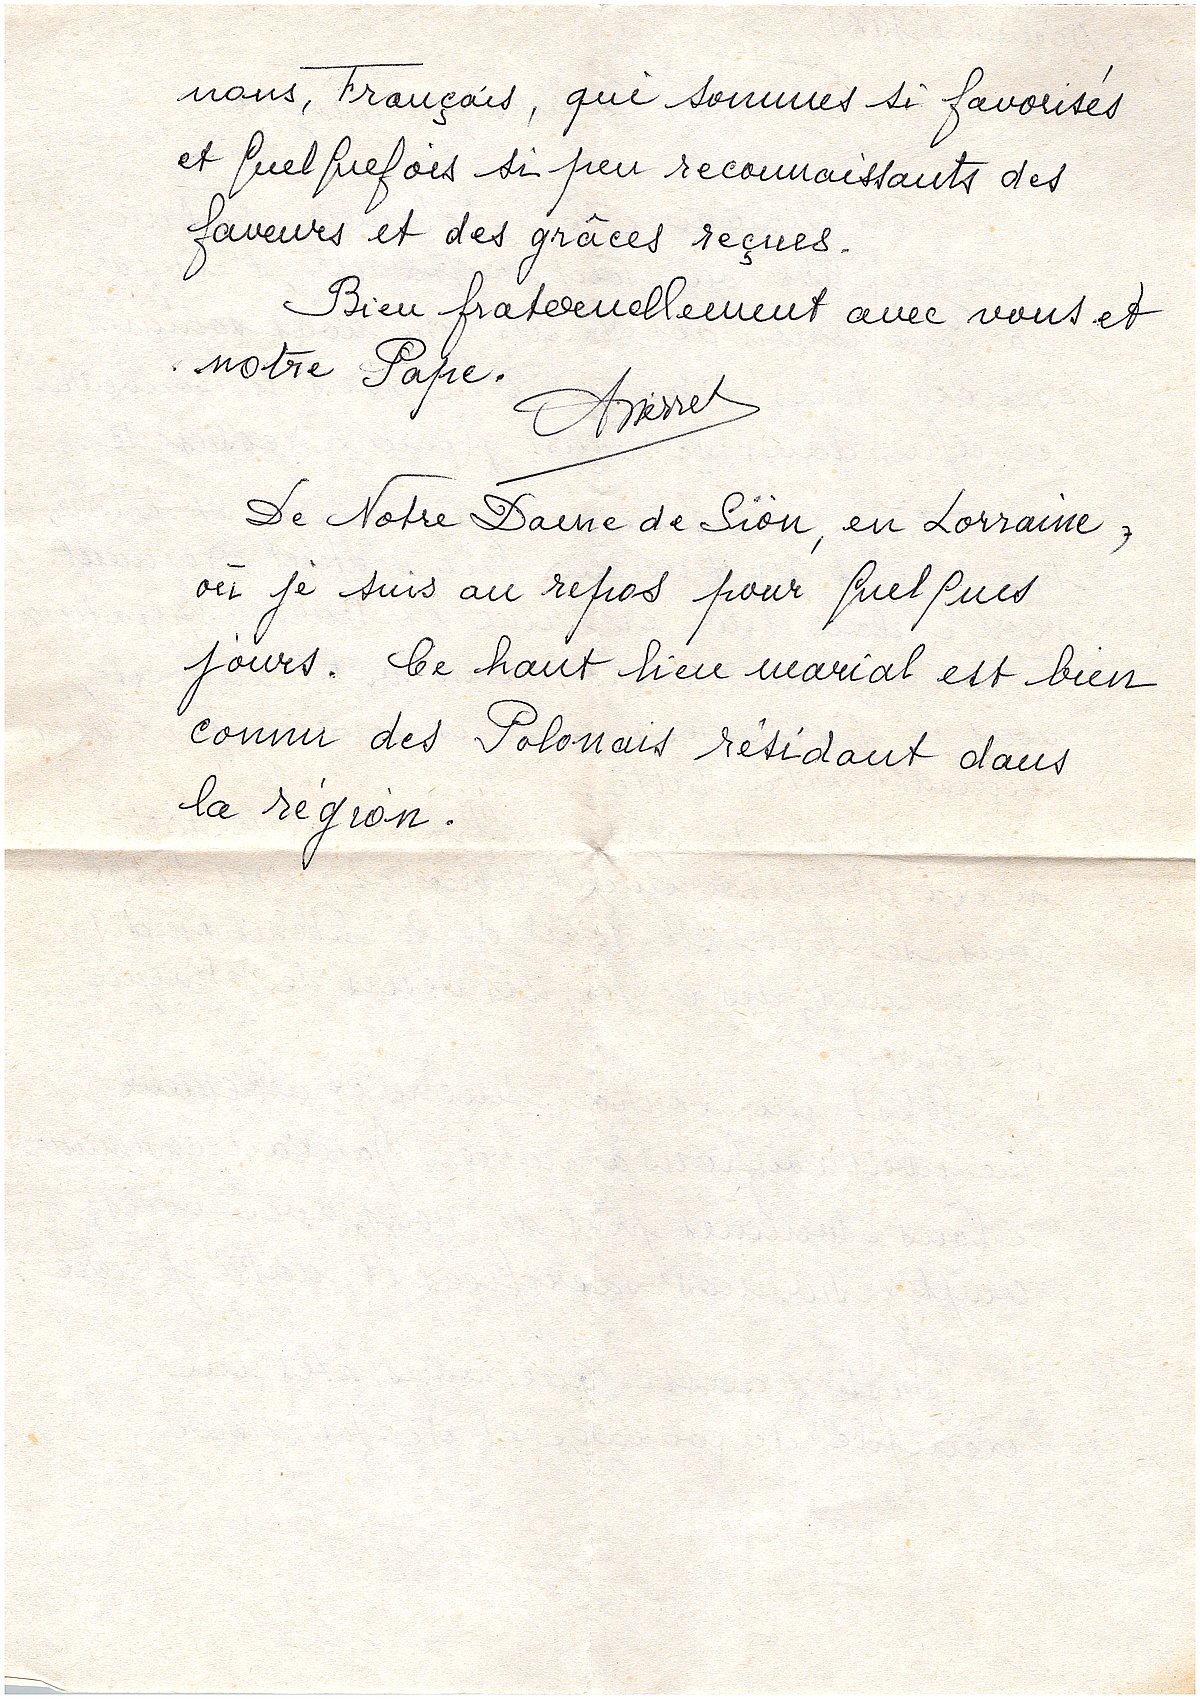 nous, Français, qui sommes si favorisés
et quelquefois si peu reconnaissants des
faveurs et des grâces reçues.
Bien fraternellement avec vous et
notre Pape.
De Notre Dame de Sion, en Lorraine,
où je suis au repos pour quelques
jours. Ce haut lieu marial est bien
connu des Polonais résidant dans
la région.